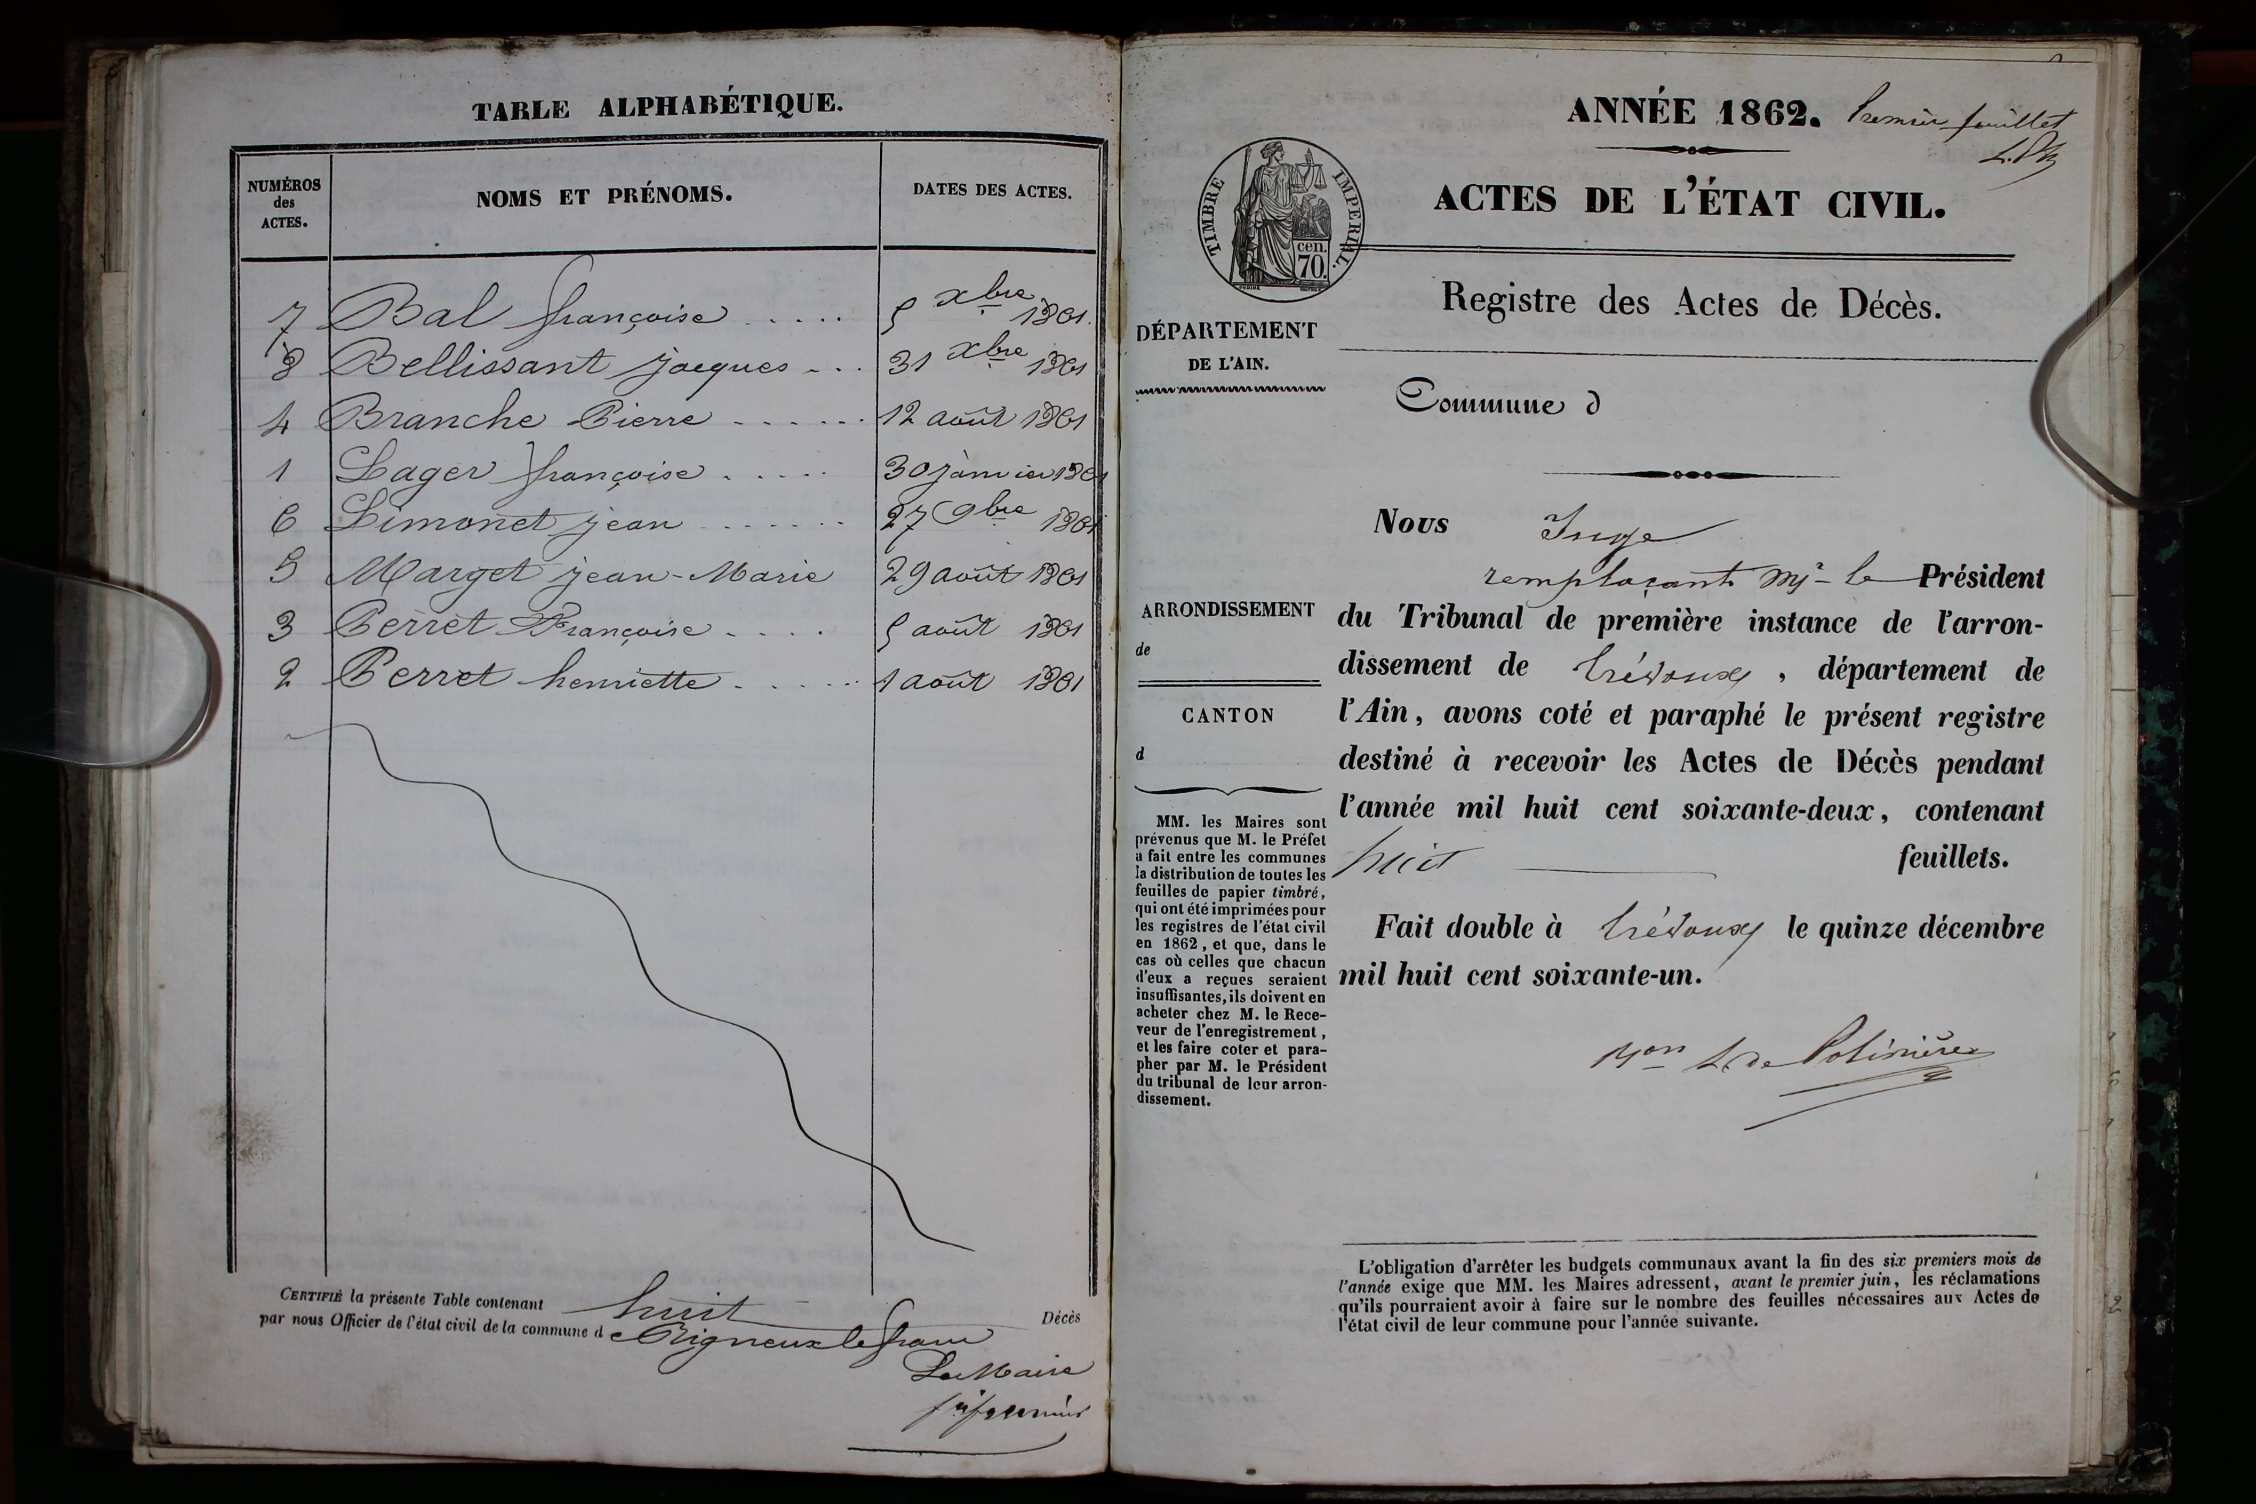 TABLE ALPHABÉTIQUE.
NUMÉROS des ACTES. NOMS ET PRÉNOMS. DATES DES ACTES.
7 Bal françoise 5 xbre 1861.
8 Bellissant jacques 31 xbre 1861
4 Branche Pierre 12 août 1861
1 Lager françoise 30 janvier 1861
6 Limonet jean 27 9bre 1861
5 Marget jean-Marie 29 août 1861
3 Perret Françoise 5 août 1861
2 Perret henriette 1 août 1861
CERTIFIÉ la présente Table contenant huit Décès
par nous Officier de l'état civil de la commune d e Rigneux le franc
Le Maire
ANNÉE 1862. Premier feuillet
ACTES DE L'ÉTAT CIVIL.
TIMBRE IMPERIAL.
cen.
70.
Registre des Actes de Décès.
DÉPARTEMENT
DE L'AIN.
Commune d
ARRONDISSEMENT
de
CANTON
d
MM. les Maires sont
prévenus que M. le Préfet
a fait entre les communes
la distribution de toutes les
feuilles de papier timbré,
qui ont été imprimées pour
les registres de l'état civil
en 1862, et que, dans le
cas où celles que chacun
d'eux a reçues seraient
insuffisantes, ils doivent en
acheter chez M. le Rece-
veur de l'enregistrement,
et les faire coter et para-
pher par M. le Président
du tribunal de leur arron-
dissement.
Nous Juge
remplaçant Mr le Président
du Tribunal de première instance de l'arron-
dissement de Trévoux, département de
l'Ain, avons coté et paraphé le présent registre
destiné à recevoir les Actes de Décès pendant
l'année mil huit cent soixante-deux, contenant
huit feuillets.
Fait double à Trévoux le quinze décembre
mil huit cent soixante-un.
de Polinière
L'obligation d'arrêter les budgets communaux avant la fin des six premiers mois de
l'année exige que MM. les Maires adressent, avant le premier juin, les réclamations
qu'ils pourraient avoir à faire sur le nombre des feuilles nécessaires aux Actes de
l'état civil de leur commune pour l'année suivante.